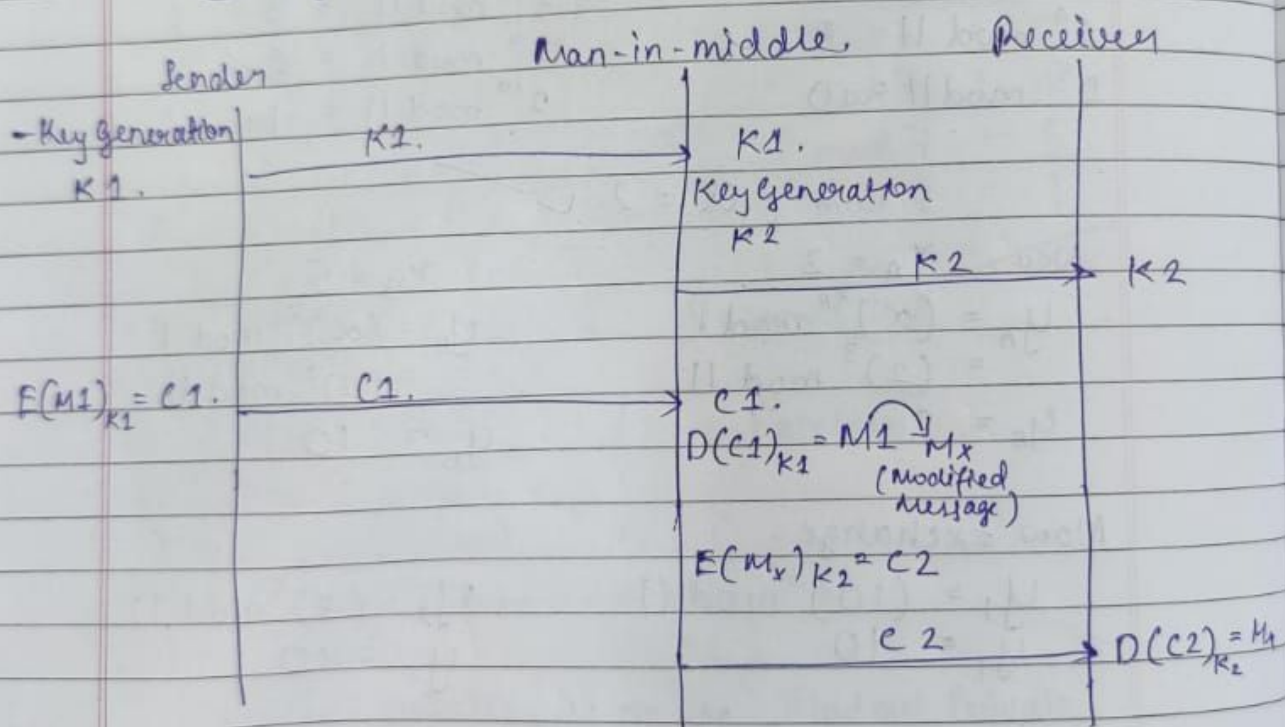 Man-in-middle. Receiver
Sender
- Key Generation K1. K1.
K1. Key Generation
K2
K2 K2
E(M1)K1 = C1. C1. C1.
D(C1)K1 = M1 Mx
(Modified
Message)
E(Mx)K2 = C2
C2 D(C2)K2 =